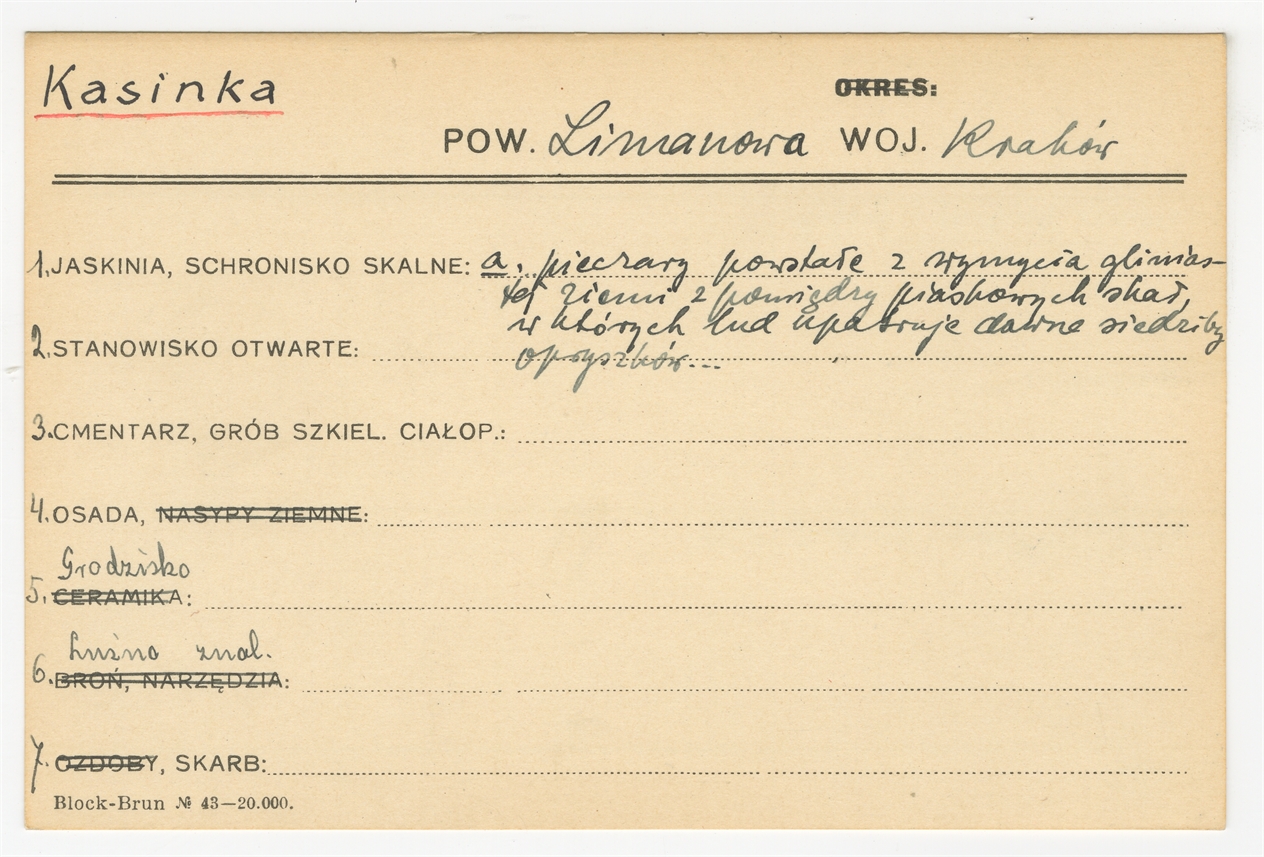 Kasinka
OKRES:
POW. Limanowa WOJ. Kraków
1. JASKINIA, SCHRONISKO SKALNE: a. pieczary powstałe z wymycia glinias-
tej ziemi z pomiędzy piaskowych skał,
w których lud upatruje dawne siedziby
2. STANOWISKO OTWARTE:
opryszków...
3. CMENTARZ, GRÓB SZKIEL. CIAŁOP.:
4. OSADA, NASYPY ZIEMNE:
Grodzisko
5. CERAMIKA:
Luźno znal.
6. BROŃ, NARZĘDZIA:
7. OZDOBY, SKARB:
Block-Brun № 43—20.000.